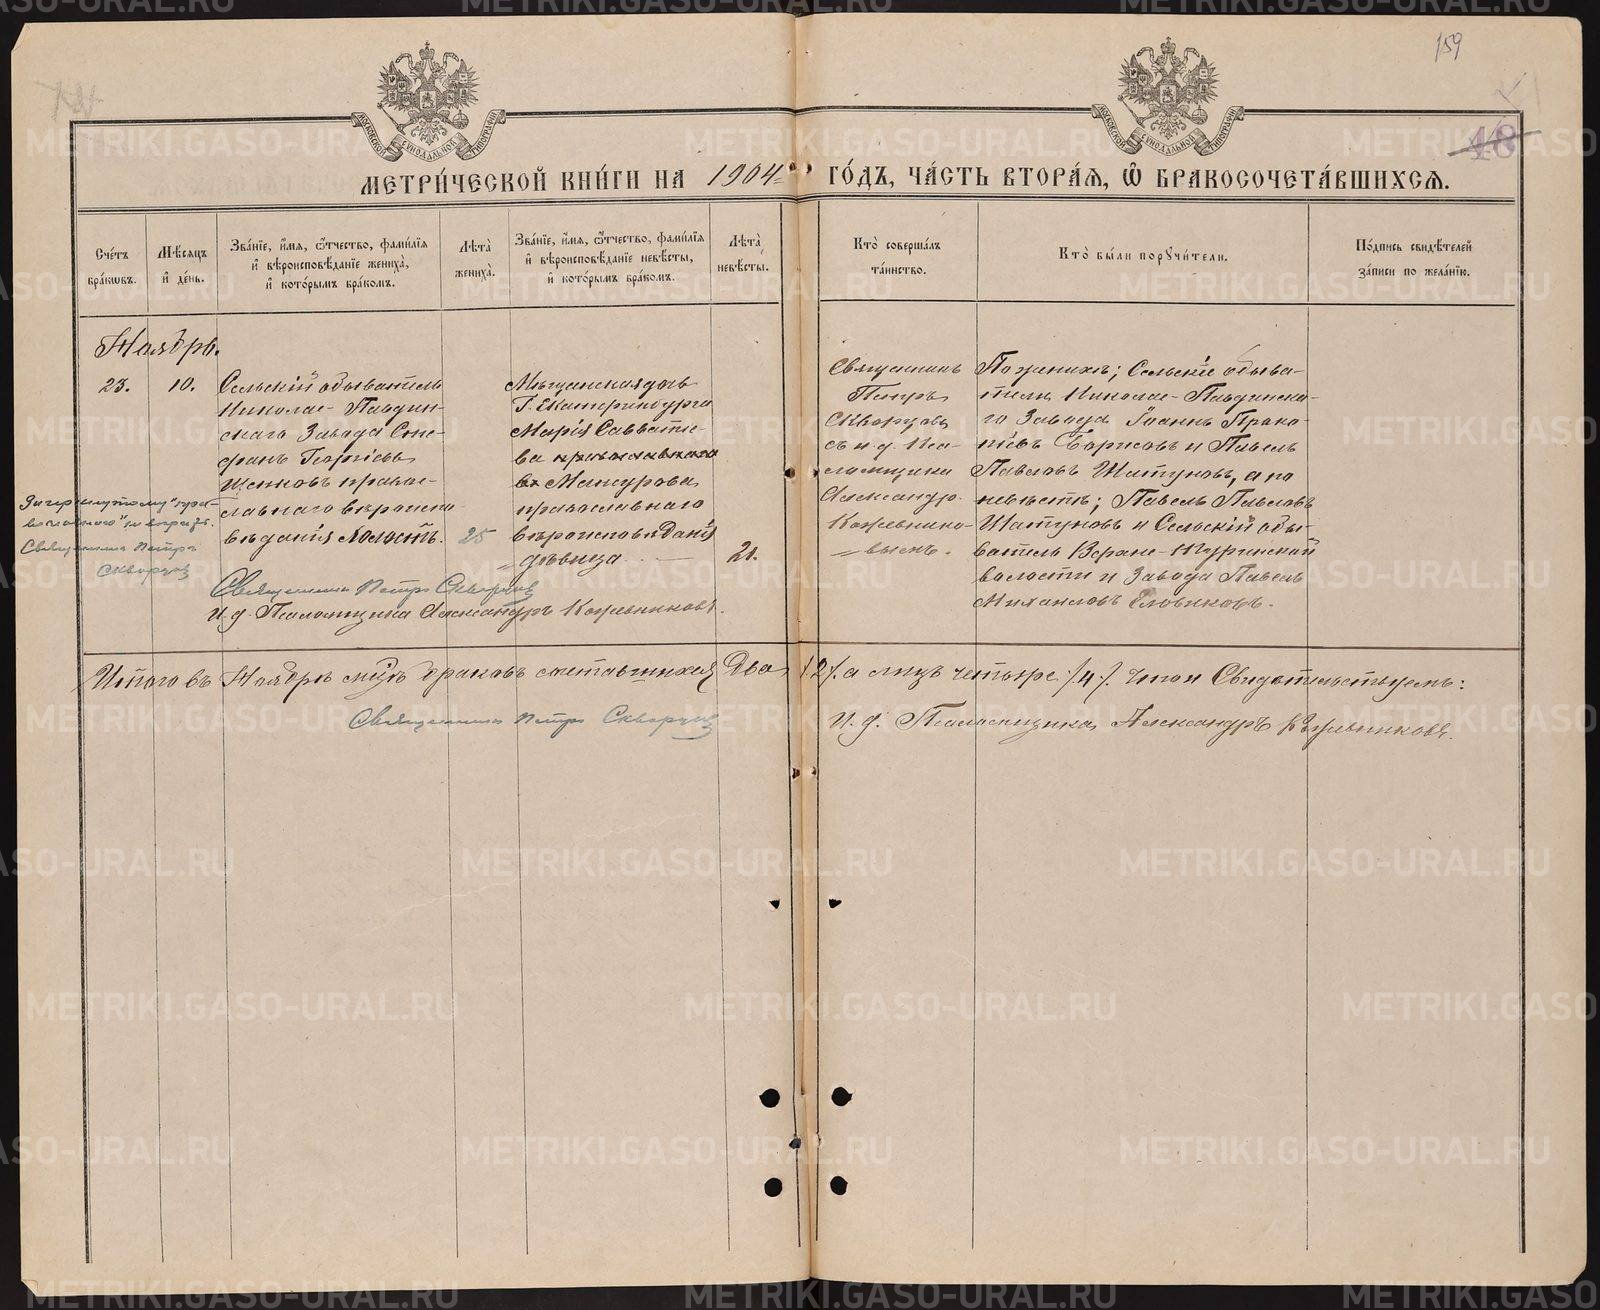 159
48
МОСКОВСКОЙ СѴНОДАЛЬНОЙ ТИПОГРАФІИ
МОСКОВСКОЙ СѴНОДАЛЬНОЙ ТИПОГРАФІИ
МЕТРИ́ЧЕСКОЙ КНИ́ГИ НА 1904 ГО́ДЪ, ЧА́СТЬ ВТОРА́Ѧ, Ѽ БРАКОСОЧЕТА́ВШИХСѦ.
Сче́тъ
бра́кѡвъ.
Мѣ́сѧцъ
и҆ де́нь.
Зва́нїе, и҆́мѧ, ѻ҆́тчество, фами́лїѧ
и҆ вѣроисповѣ́данїе жениха̀,
и҆ кото́рымъ бра́комъ.
Лѣ́та
жениха̀.
Зва́нїе, и҆́мѧ, ѻ҆́тчество, фами́лїѧ
и҆ вѣроисповѣ́данїе невѣ́сты,
и҆ кото́рымъ бра́комъ.
Лѣ́та
невѣ́сты.
Кто̀ соверша́лъ
та́инство.
Кто̀ бы́ли порꙋчи́тели.
По́дпись свидѣ́телей
за́писи по жела́нїю.
Ноябрь.
23.
10.
Сельскій обыватель
Николае-Павдин-
скаго Завода Сте-
фанъ Георгіевъ
православ-
славнаго вѣроиспо-
вѣданія холостъ.
25
Мѣщанская дочь
Г. Екатеринбурга
Марія Савватіе-
ва православнаго
Мансурова,
православнаго
вѣроисповѣданія
дѣвица
21.
Священникъ
Петръ
Скворцовъ
съ и. д. Пса-
ломщика
Александр.
Кожевнико-
вымъ.
По женихѣ; Сельскіе обыва-
тели Николае-Павдинска-
го Завода Іоаннъ Проко-
піевъ Борисовъ и Павелъ
Павловъ Шатуновъ, а по
невѣстѣ; Павелъ Павловъ
Шатуновъ и Сельскій обы-
ватель Верхне-Туринской
волости и Завода Павелъ
Михаиловъ Словиковъ.
Зачеркнутому "право-
славнаго" не вѣрить.
Священникъ Петръ
Скворцовъ
Священникъ Петръ Скворцовъ
И. д. Псаломщика Александръ Кожевниковъ.
Итого въ Ноябрѣ мцѣ браковъ сочетавшихся Два /2/. а лицъ четыре /4/. въ чемъ и Свидѣтельствуемъ:
Священникъ Петръ Скворцовъ
И. д. Псаломщика Александръ Кожевниковъ.
METRIKI.GASO-URAL.RU